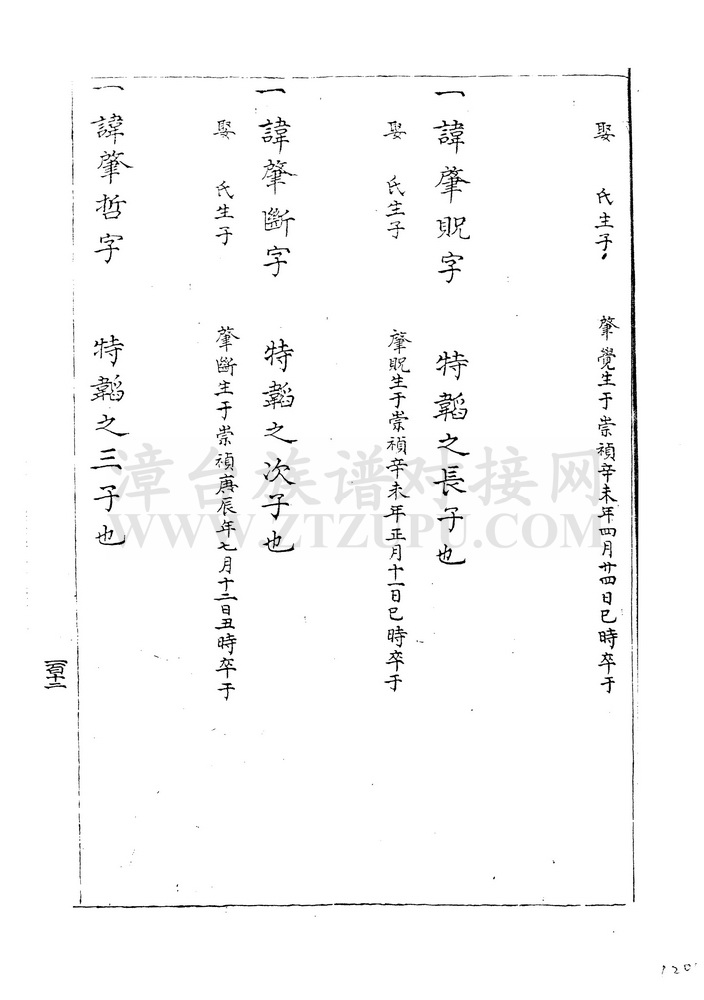 娶 氏生子
肇覺生于崇禎辛未年四月廿四日巳時卒于
一諱肇貺字 特韜之長子也
娶 氏生子
肇貺生于崇禎辛未年正月十一日巳時卒于
一諱肇斷字 特韜之次子也
娶 氏生子
肇斷生于崇禎庚辰年七月十二日丑時卒于
一諱肇哲字 特韜之三子也
一百十二
120
漳台族谱对接网
WWW.ZTZUPU.COM